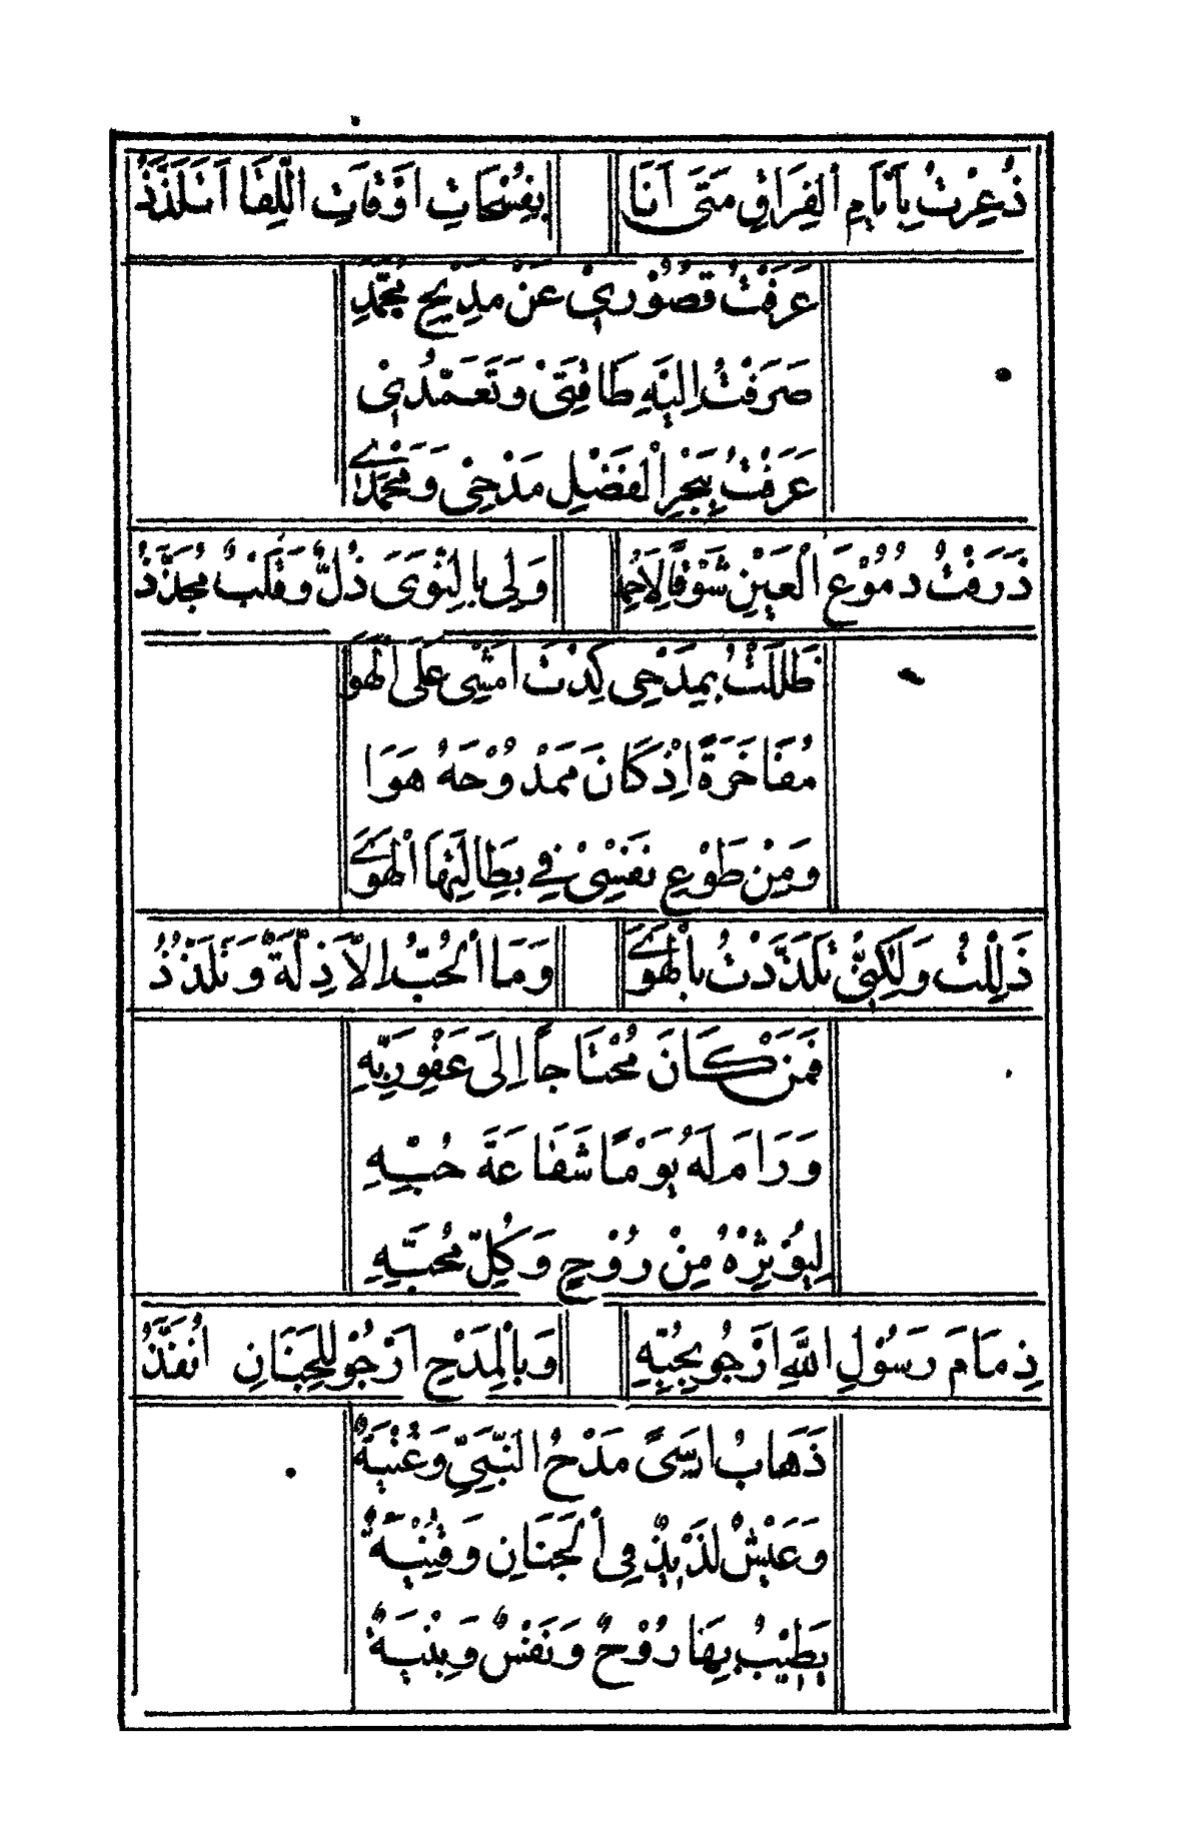 ذُعِرْتُ بِاَيَّامِ الْفِرَاقِ مَتَى اَنَا بِفُسْحَاتِ اَوْقَاتِ اللِّقَا اَتَلَذَّذُ
عَرَفْتُ قُصُوْرِيْ عَنْ مَدِيْحِ مُحَمَّدِ
صَرَفْتُ اِلَيْهِ طَاقَتِيْ وَتَعَمُّدِيْ
غَرَفْتُ بِبَحْرِ الْفَضْلِ مَدْحِيْ وَمَحْمَدَيْ
ذَرَفْتُ دُمُوْعَ الْعَيْنِ شَوْقًا لِاَحْمَدَ وَلِى بِالنَّوَى ذُلٌّ وَقَلْبٌ مُجَذَّذُ
ظَلَلْتُ بِمَدْحِى كِدْتُ اَمْشِىْ عَلَى الْهَوَا
مُفَاخَرَةً اِذْ كَانَ مَمْدُوْحَهُ هَوَا
وَمِنْ طَوْعِ نَفْسِىْ فِيْ بِطَالَتِهَا الْهَوَى
ذَلِلْتُ وَلٰكِنِّىْ تَلَذَّذْتُ بِالْهَوَى وَمَا الْحُبُّ اِلَّا ذِلَّةٌ وَتَلَذُّذُ
فَمَنْ كَانَ مُحْتَاجًا اِلَى عَفْوِ رَبِّهِ
وَرَامَ لَهُ يَوْمًا شَفَاعَةَ حُبِّهِ
لِيُؤْثِرْهُ مِنْ رُوْحٍ وَكُلِّ مُحَبَّهِ
ذِمَامَ رَسُوْلِ اللهِ اَرْجُو بِحُبِّهِ وَبِالْمَدْحِ اَرْجُوْ لِلْجِنَانِ اُنَفَّذُ
ذَهَابُ اَسًى مَدْحُ النَّبِيِّ وَغُنْيَةٌ
وَعَيْشٌ لَذِيْذٌ فِى الْجَنَانِ وَقِيْنَةٌ
يَطِيْبُ بِهَا رُوْحٌ وَنَفْسٌ وَبِنْيَةٌ